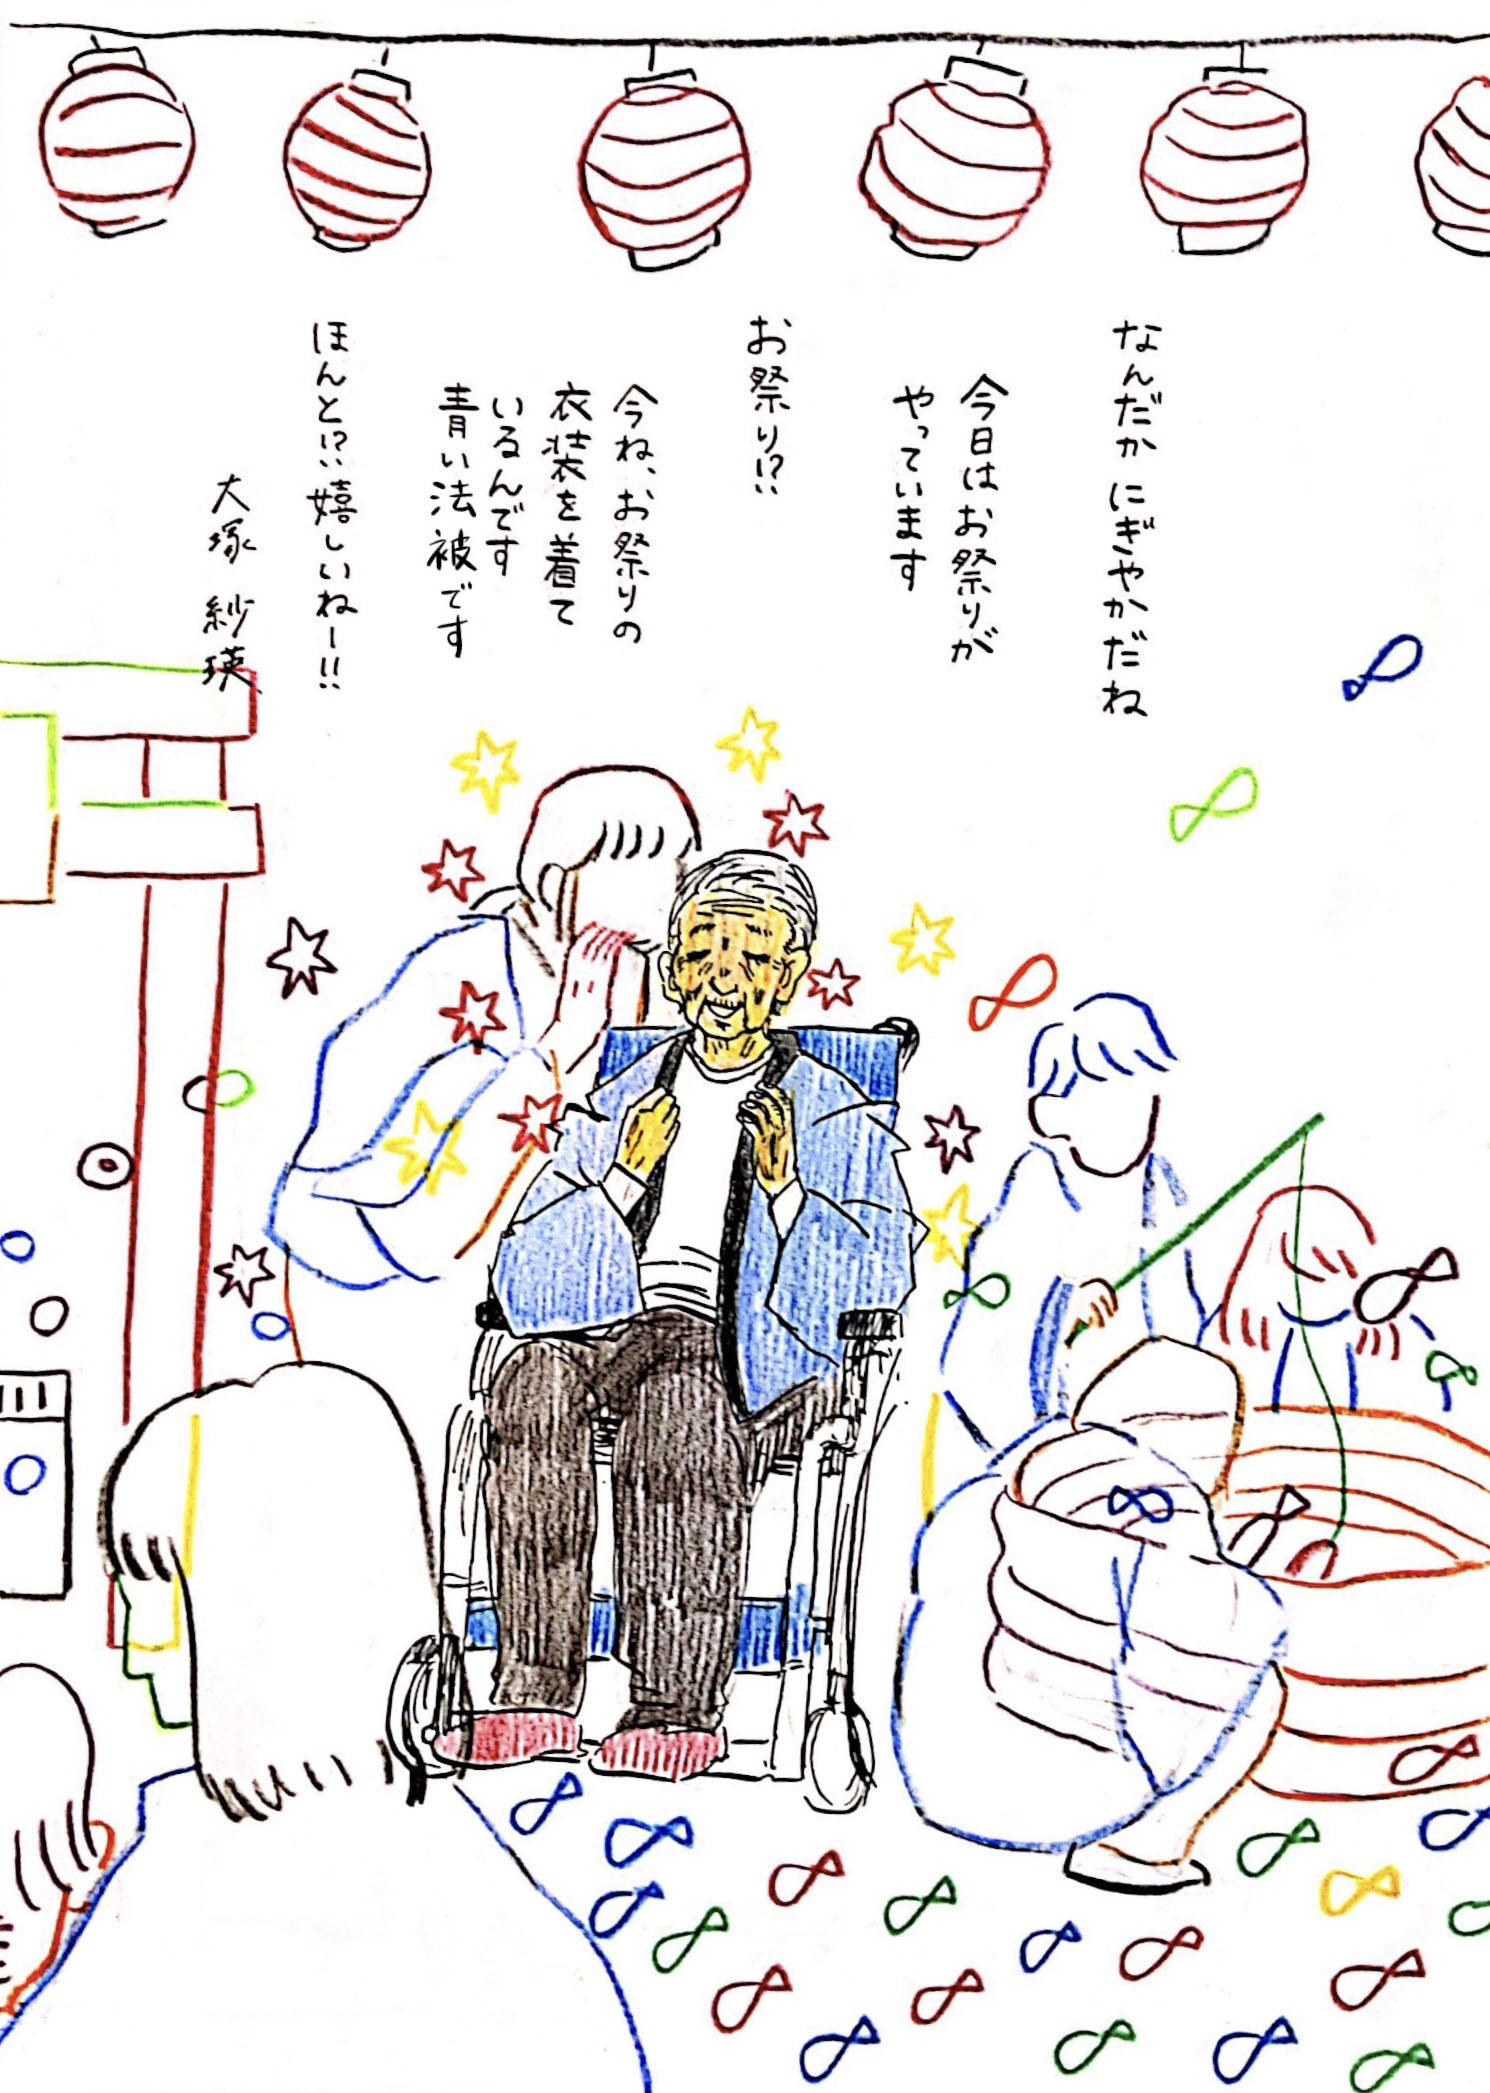 なんだか にぎやかだね
今日はお祭りが
やっています
お祭り!?
今ね、お祭りの
衣装を着て
いるんです
青い法被です
ほんと!?嬉しいねー!!
大塚 紗瑛